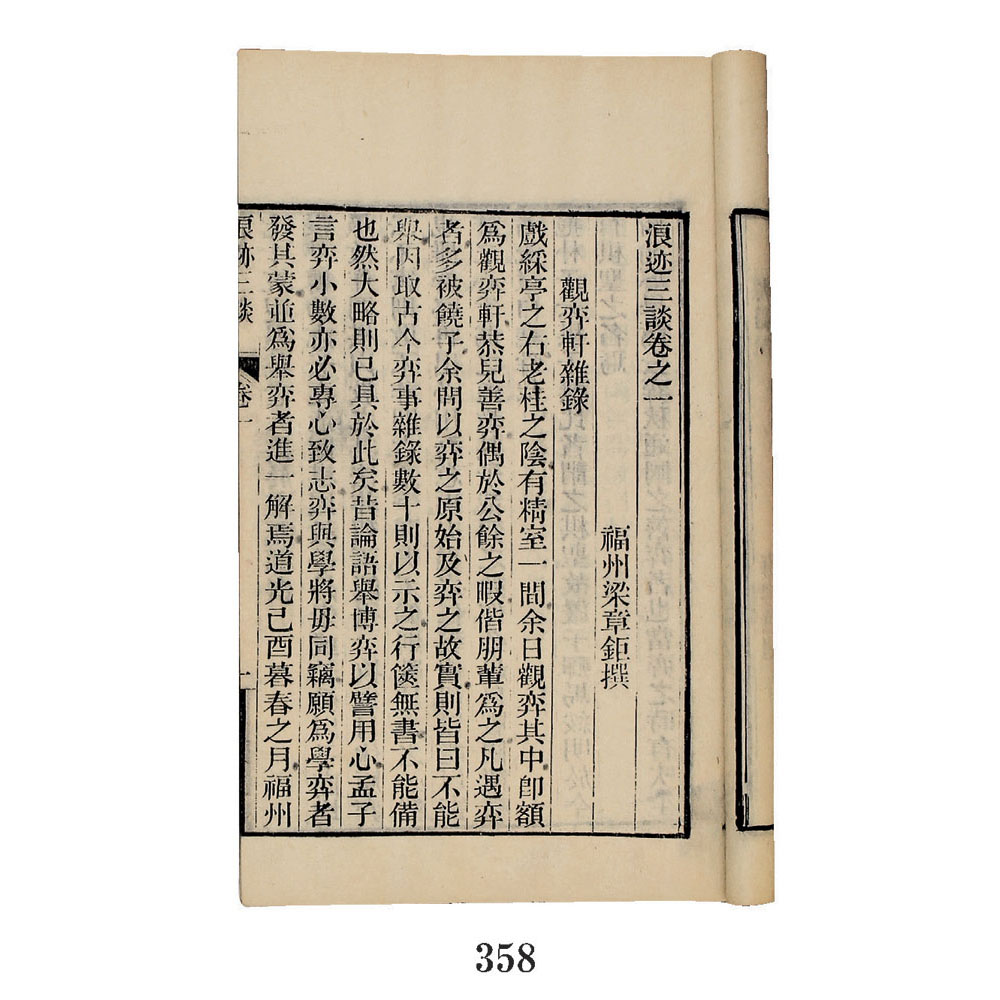 浪迹三談卷之一
福州梁章鉅撰
觀弈軒雜錄
戲綵亭之右老桂之陰有精室一間余日觀弈其中卽額
爲觀弈軒恭兒善弈偶於公餘之暇偕朋輩爲之凡遇弈
者多被饒子余問以弈之原始及弈之故實則皆曰不能
舉因取古今弈事雜錄數十則以示之行篋無書不能備
也然大略則已具於此矣昔論語舉博弈以譬用心孟子
言弈小數亦必專心致志弈與學將毋同竊願爲學弈者
發其蒙並爲舉弈者進一解焉道光己酉暮春之月福州
浪迹三談 卷一 一
358